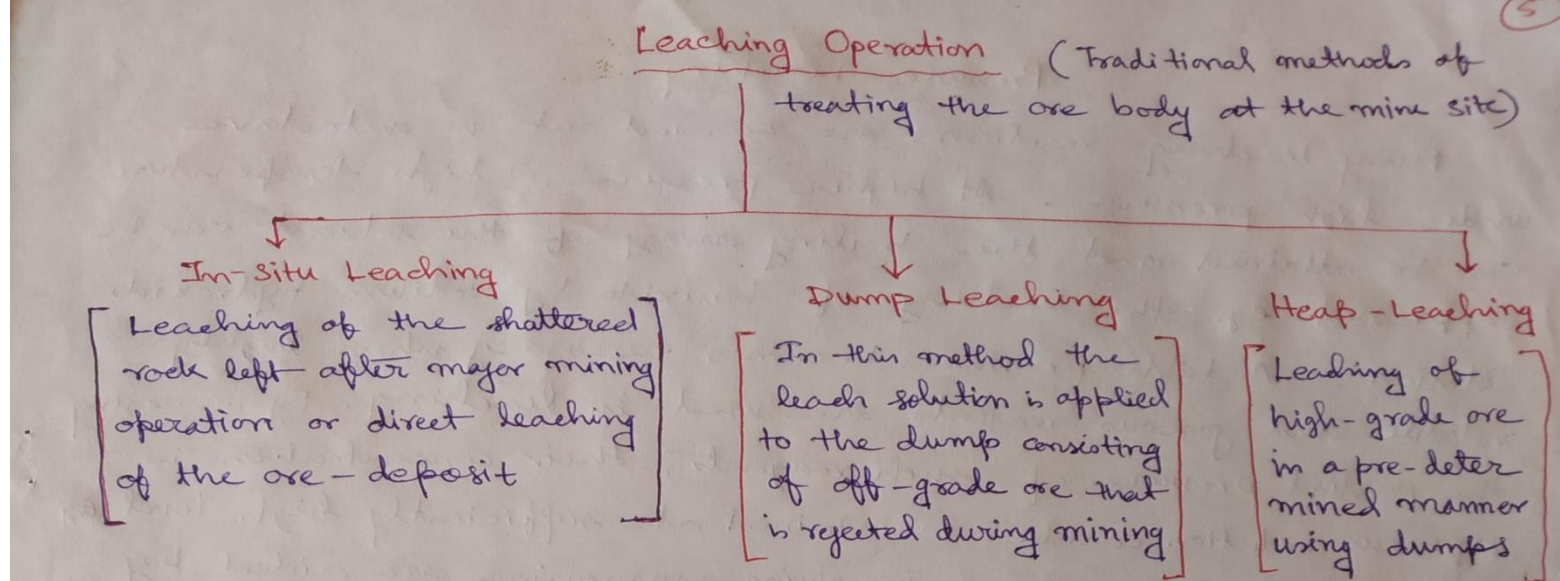 5
Leaching Operation (Traditional methods of
treating the ore body at the mine site)
In-situ Leaching
Leaching of the shattered
rock left after major mining
operation or direct leaching
of the ore-deposit
Dump Leaching
In this method the
leach solution is applied
to the dump consisting
of off-grade ore that
is rejected during mining
Heap-Leaching
Leaching of
high-grade ore
in a pre-deter
mined manner
using dumps